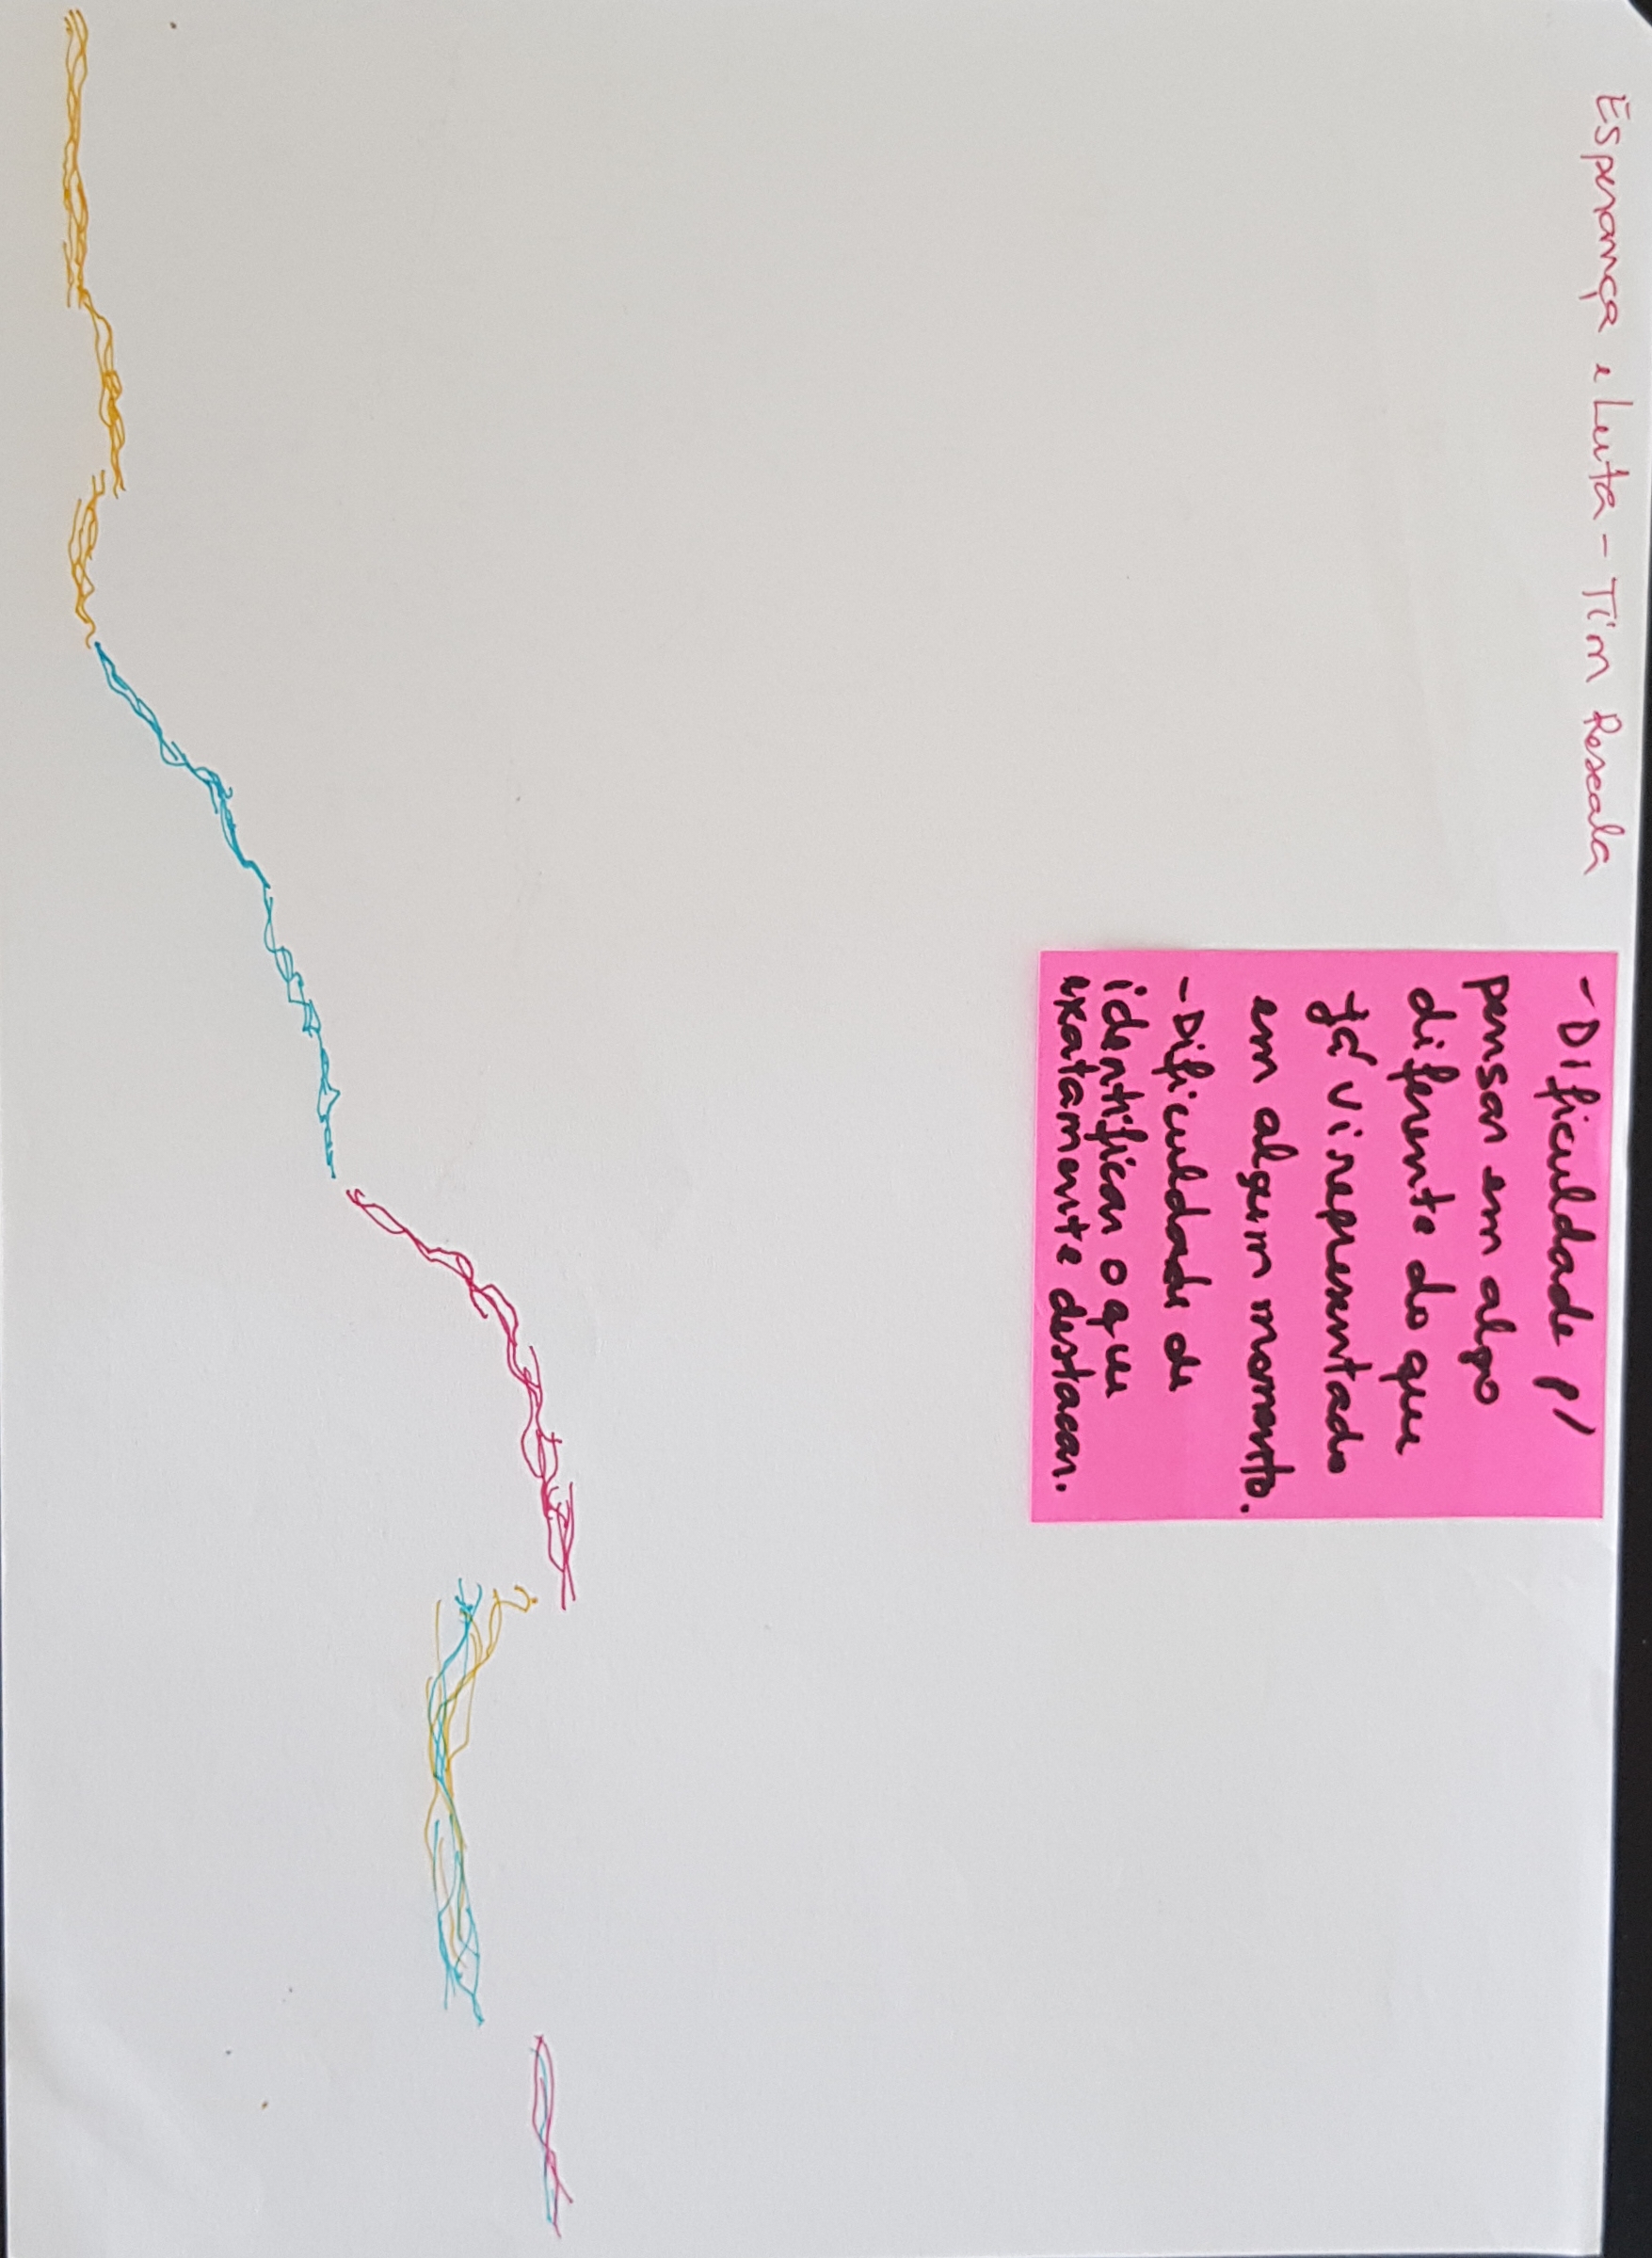 Esperança e Luta - Tim Rescala
- Dificuldade p/
pensar em algo
diferente do que
já vi representado
em algum momento.
- Dificuldade de
identificar o que
exatamente destacar.